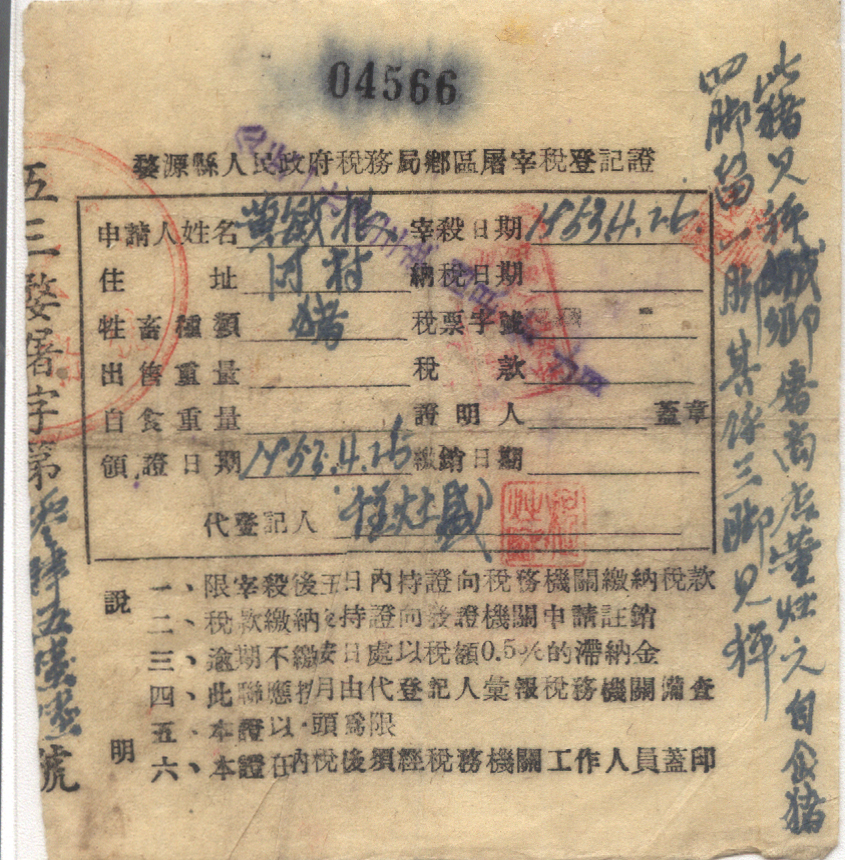 04566
婺源縣人民政府稅務局鄉區屠宰稅登記證
申請人姓名 黄敏根 宰殺日期 1953.4.26.
住址 村 納稅日期
牲畜種類 猪 稅票字號
出售重量 稅款
自食重量 證明人 蓋章
領證日期 1953.4.26 繳銷日期
代登記人
說明
一、限宰殺後五日內持證向稅務機關繳納稅款
二、稅款繳納後持證向發證機關申請註銷
三、逾期不繳按日處以稅額0.5%的滯納金
四、此聯應按月由代登記人彙報稅務機關備查
五、本證以一頭爲限
六、本證在納稅後須經稅務機關工作人員蓋印
五三婺屠字第零肆五陸陸號
此猪只 鄉屠商店董灶元自食猪
四脚留一脚其 三脚只